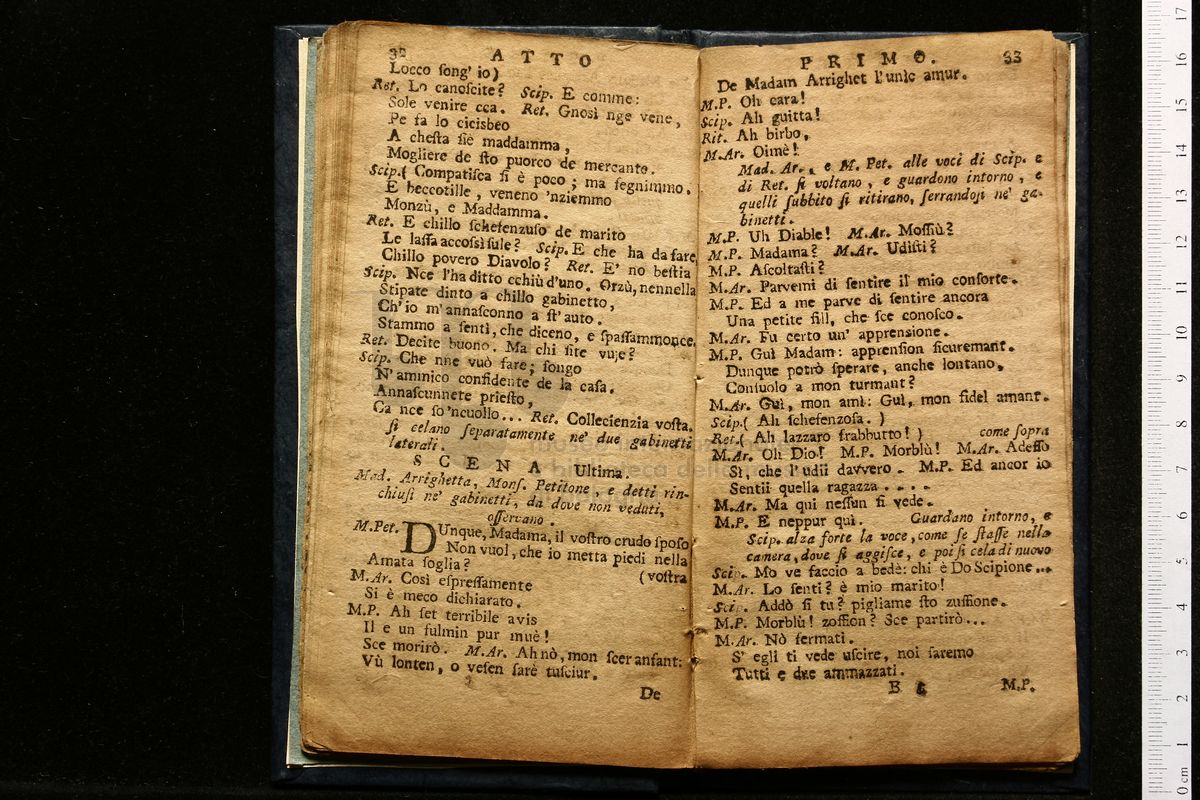 32 ATTO
Locco ſong' io)
Ret. Lo canoſcite? Scip. E comme:
Sole venire cca. Ret. Gnosì nge vene,
Pe fa lo cicisbeo
A cheſta ſiè maddamma,
Mogliere de ſto puorco de mercanto.
Scip.( Compatiſca ſi è poco; ma ſegnimmo.
E beccotille, veneno 'nziemmo
Monzù, e Maddamma.
Ret. E chillo ſchefenzuſo de marito
Le laſſa accoſsì ſule? Scip. E che ha da fare
Chillo povero Diavolo? Ret. E' no beſtia
Scip. Nce l'ha ditto cchiù d'uno. Orzù, nennella
Stipate dinto a chillo gabinetto,
Ch'io m'annaſconno a ſt'auto.
Stammo a ſentì, che diceno, e ſpaſſammonce.
Ret. Decite buono. Ma chi ſite vuje?
Scip. Che nne vuò fare; ſongo
N'ammico confidente de la caſa.
Annaſcunnete prieſto,
Ca nce ſo'ncuollo... Ret. Collecienzia voſta.
ſi celano ſeparatamente ne' due gabinetti
laterali.
SCENA Ultima.
Mad. Arrighetta, Monſ. Petitone, e detti rin-
chiuſi ne' gabinetti, da dove non veduti,
oſſervano.
M.Pet. DUnque, Madama, il voſtro crudo ſpoſo
Non vuol, che io metta piedi nella
Amata ſoglia? (voſtra
M.Ar. Così eſpreſſamente
Si è meco dichiarato.
M.P. Ah ſet terribile avis
Il e un fulmin pur muè!
Sce morirò. M.Ar. Ah nò, mon ſcer anfant:
Vù lonten, o veſen ſarè tuſciur.
De
PRIMO. 33
De Madam Arrighet l'unic amur.
M.P. Oh cara!
Scip. Ah guitta!
Rit. Ah birbo,
M.Ar. Oimè!
Mad. Ar., e M. Pet. alle voci di Scip. e
di Ret. ſi voltano, e guardono intorno, e
quelli ſubbito ſi ritirano, ſerrandoſi ne' ga-
binetti.
M.P. Uh Diable! M.Ar. Moſſiù?
M.P. Madama? M.Ar. Udiſti?
M.P. Aſcoltaſti?
M.Ar. Parvemi di ſentire il mio conſorte.
M.P. Ed a me parve di ſentire ancora
Una petite fill, che ſce conoſco.
M.Ar. Fu certo un' apprenſione.
M.P. Guì Madam: apprenſion ſicuremant.
Dunque potrò ſperare, anche lontano,
Conſuolo a mon turmant?
M.Ar. Guì, mon amì: Guì, mon fidel amant.
Scip.( Ah ſchefenzoſa. )
Ret.( Ah lazzaro frabbutto! ) come ſopra
M.Ar. Oh Dio! M.P. Morblù! M.Ar. Adeſſo
Sì, che l'udii davvero. M.P. Ed ancor io
Sentii quella ragazza ....
M.Ar. Ma qui neſſun ſi vede.
M.P. E neppur quì. Guardano intorno, e
Scip. alza forte la voce, come ſe ſtaſſe nella
camera, dove ſi aggiſce, e poi ſi cela di nuovo
Scip. Mo ve faccio a bedè: chi è Do Scipione...
M.Ar. Lo ſenti? è mio marito!
Scip. Addò ſi tu? pigliame ſto zuffione.
M.P. Morblù! zoffion? Sce partirò...
M.Ar. Nò fermati.
S' egli ti vede uſcire, noi ſaremo
Tutti e due ammazzati.
B M.P.